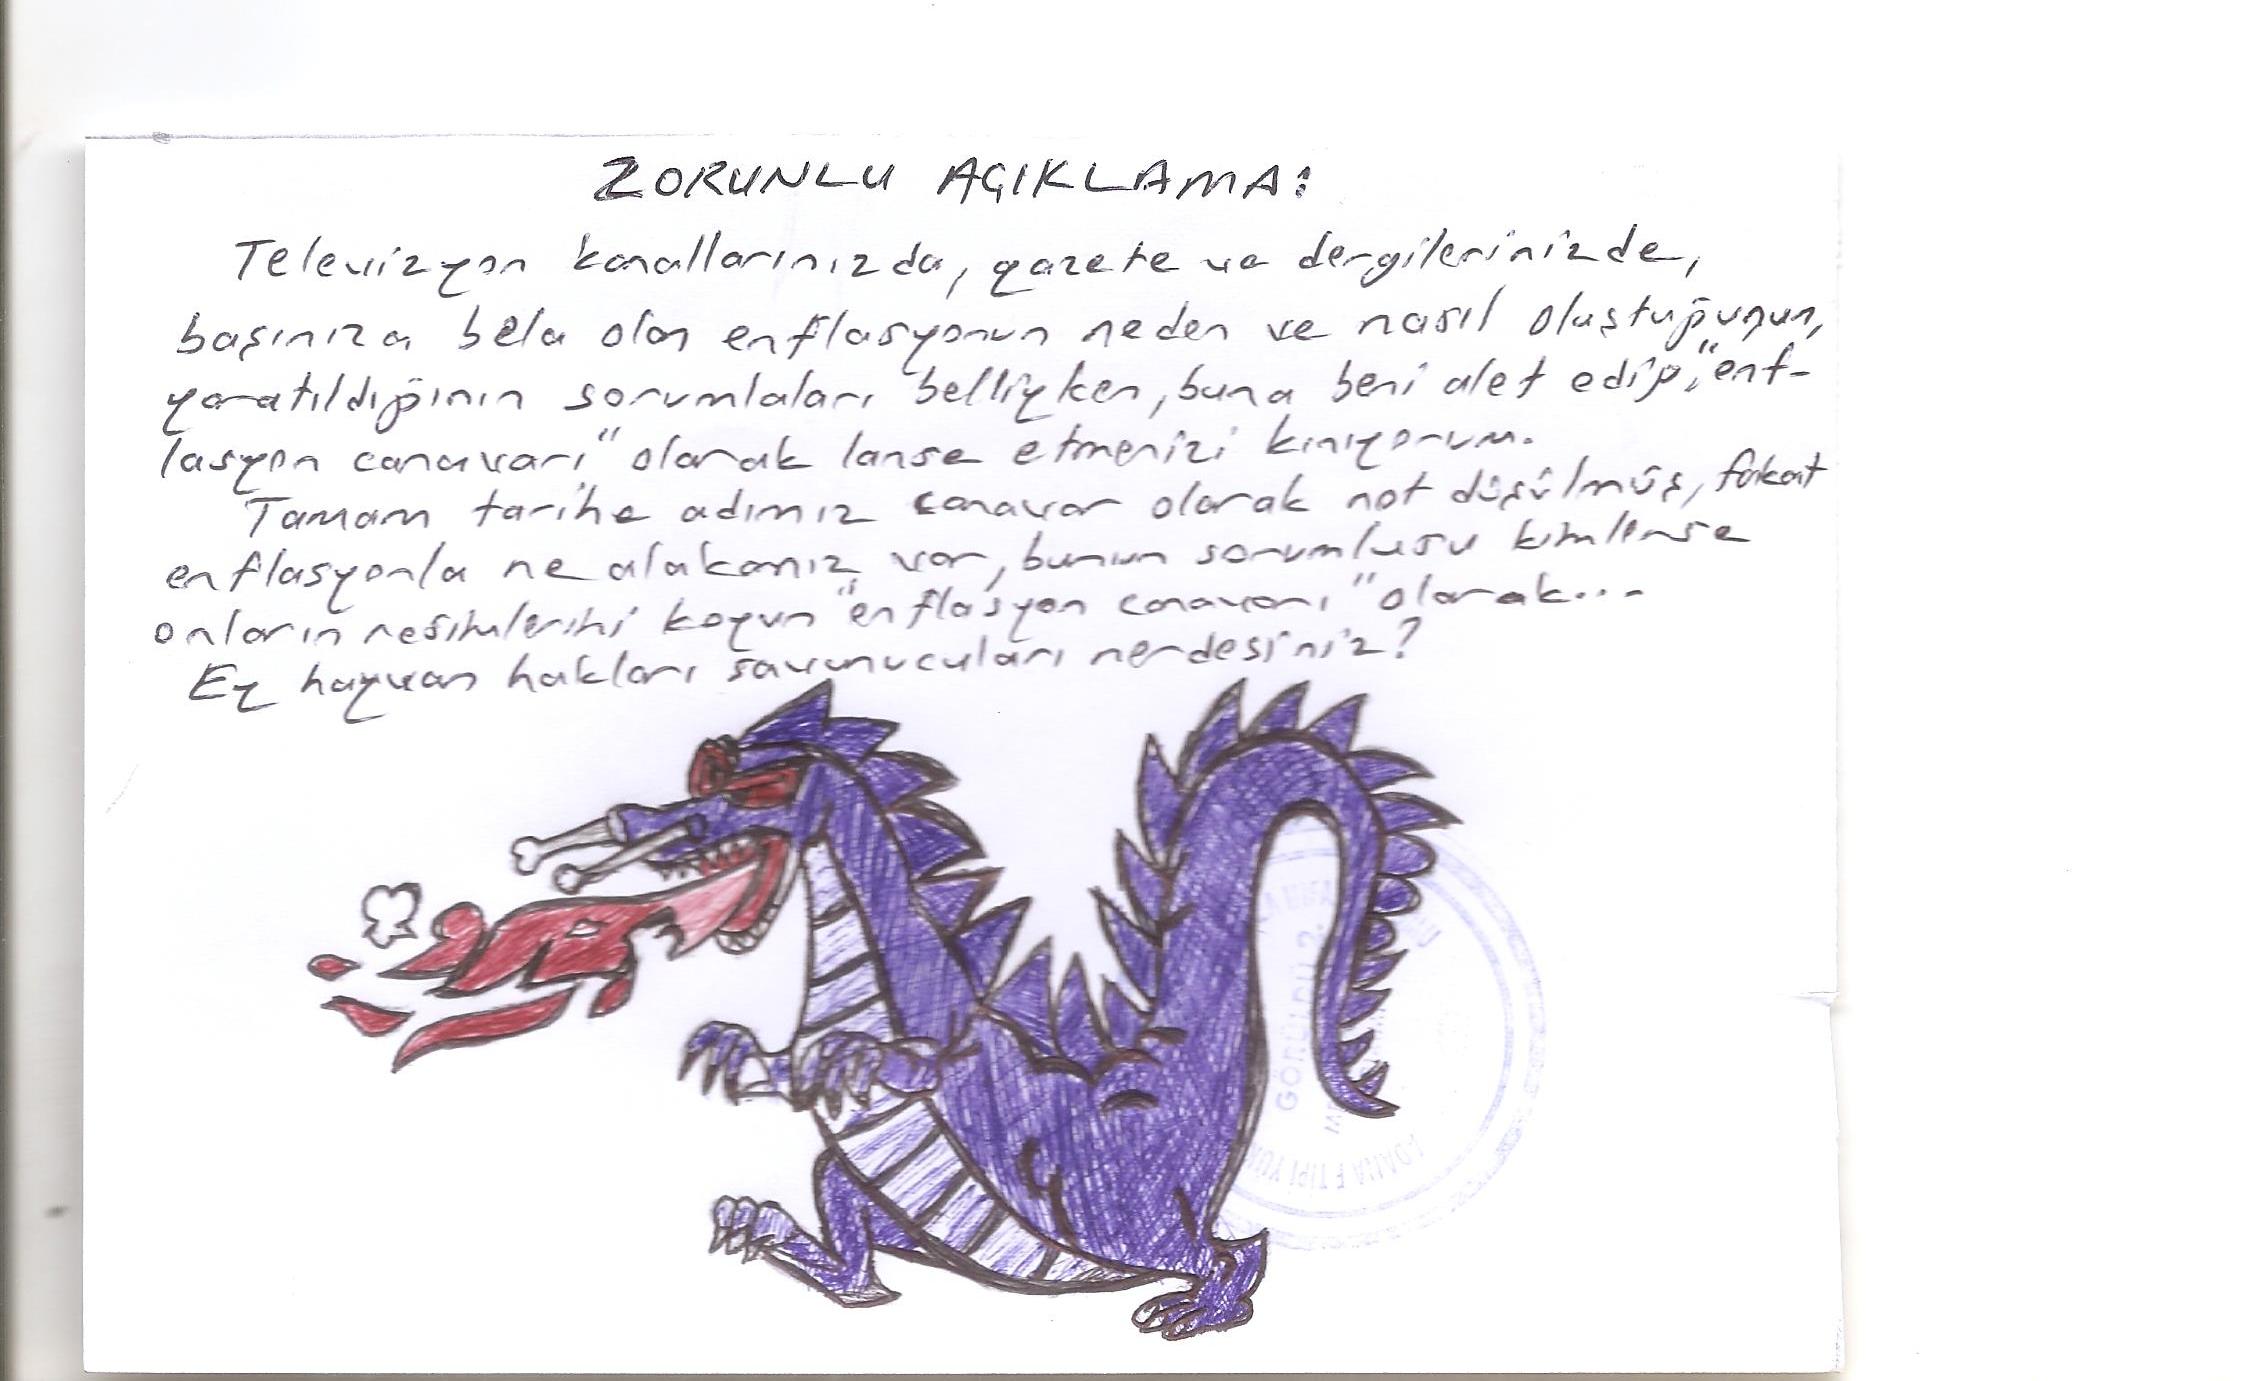 ZORUNLU AÇIKLAMA:
Televizyon kanallarınızda, gazete ve dergilerinizde,
başınıza bela olan enflasyonun neden ve nasıl oluştuğunun,
yaratıldığının sorumluları belliyken, buna beni alet edip, "enf-
lasyon canavarı" olarak lanse etmenizi kınıyorum.
Tamam tarihe adımız canavar olarak not düşülmüş, fakat
enflasyonla ne alakamız var, bunun sorumlusu kimlerse
onların resimlerini koyun "enflasyon canavarı" olarak...
Ey hayvan hakları savunucuları nerdesiniz?
GÖRÜLDÜ 2
ADANA F TİPİ